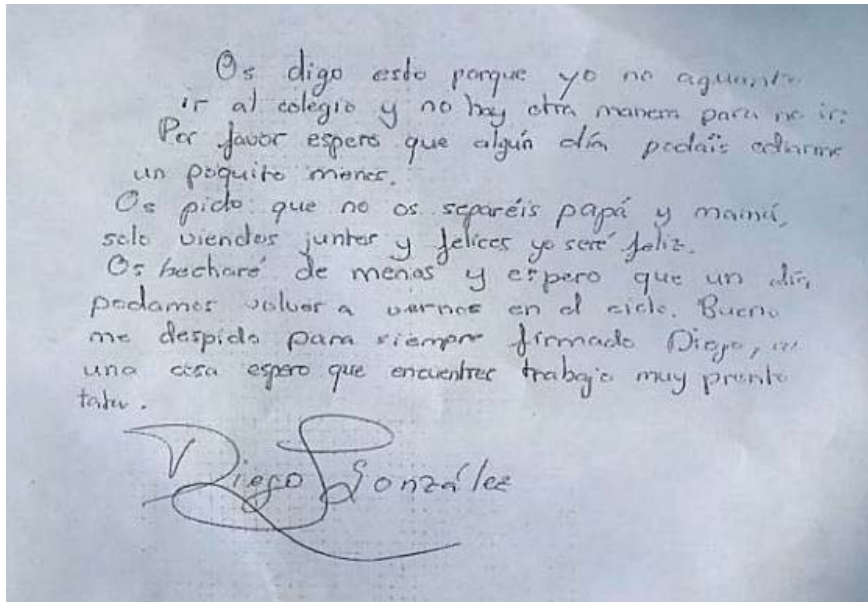 Os digo esto porque yo no aguanto
ir al colegio y no hay otra manera para no ir.
Por favor espero que algún día podáis odiarme
un poquito menos.
Os pido que no os separéis papá y mamá,
solo viendos juntos y felices yo seré feliz.
Os hecharé de menos y espero que un día
podamos volver a vernos en el cielo. Bueno
me despido para siempre firmado Diego,
una cosa espero que encuentres trabajo muy pronto
tata.
Diego González